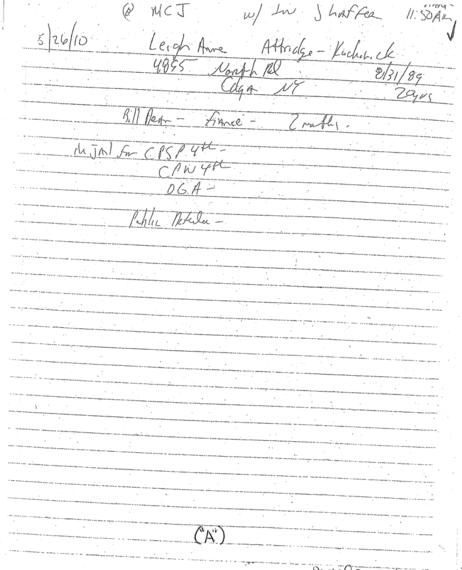 @ MCJ w/ Inv Shaffer 11:50AM
5/26/10 Leigh Anne Attridge-
4855 North Rd 8/31/89
NY 20yrs
Bill - fiance - 2 months.
for CPSP 4th-
CPW 4th
OGA-
Public
("A")